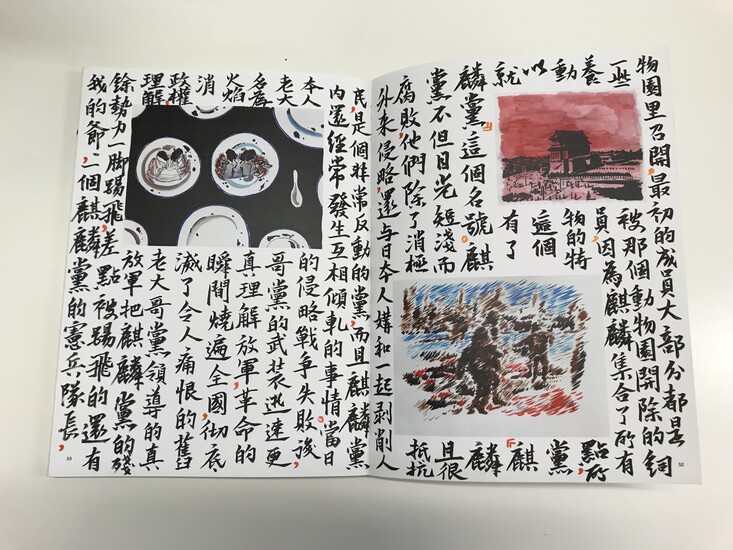 物園里召開，最初的成員大部分都是
一些被那個動物園開除的飼
養員，因為麒麟集合了所有
動物的特點，所
以這個黨
就有了『麒
麟黨』這個名號。麒麟
黨不但目光短淺而且很
腐敗，他們除了消極抵抗
外來侵略，還與日本人媾和一起剝削人
52
民，是個非常反動的黨，而且麒麟黨
內還經常發生互相傾軋的事情。當日
本人的侵略戰爭失敗後，
老大哥黨的武裝迅速更
名為真理解放軍，革命的
火焰瞬間燒遍全國，徹底
消滅了令人痛恨的舊
政權，老大哥黨領導的真
理解放軍把麒麟黨的殘
餘勢力一脚踢飛，差點被踢飛的還有
我的爺爺，一個麒麟黨的憲兵隊長，
53